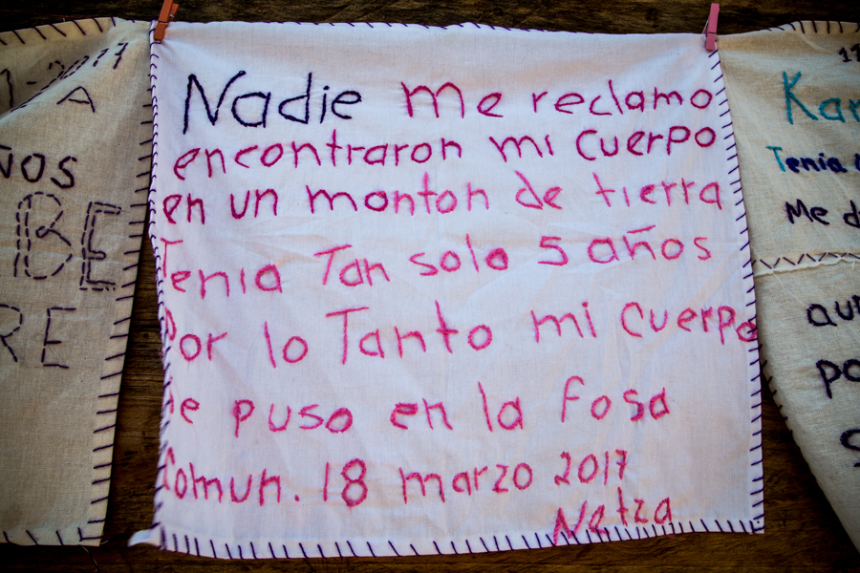 Nadie me reclamo
encontraron mi cuerpo
en un monton de tierra
Tenia Tan solo 5 años
Por lo Tanto mi cuerpo
se puso en la fosa
Comun. 18 marzo 2017
Netza
-2017
A
ños
BE
RE
17
Kar
Tenia
Me d
aun
po